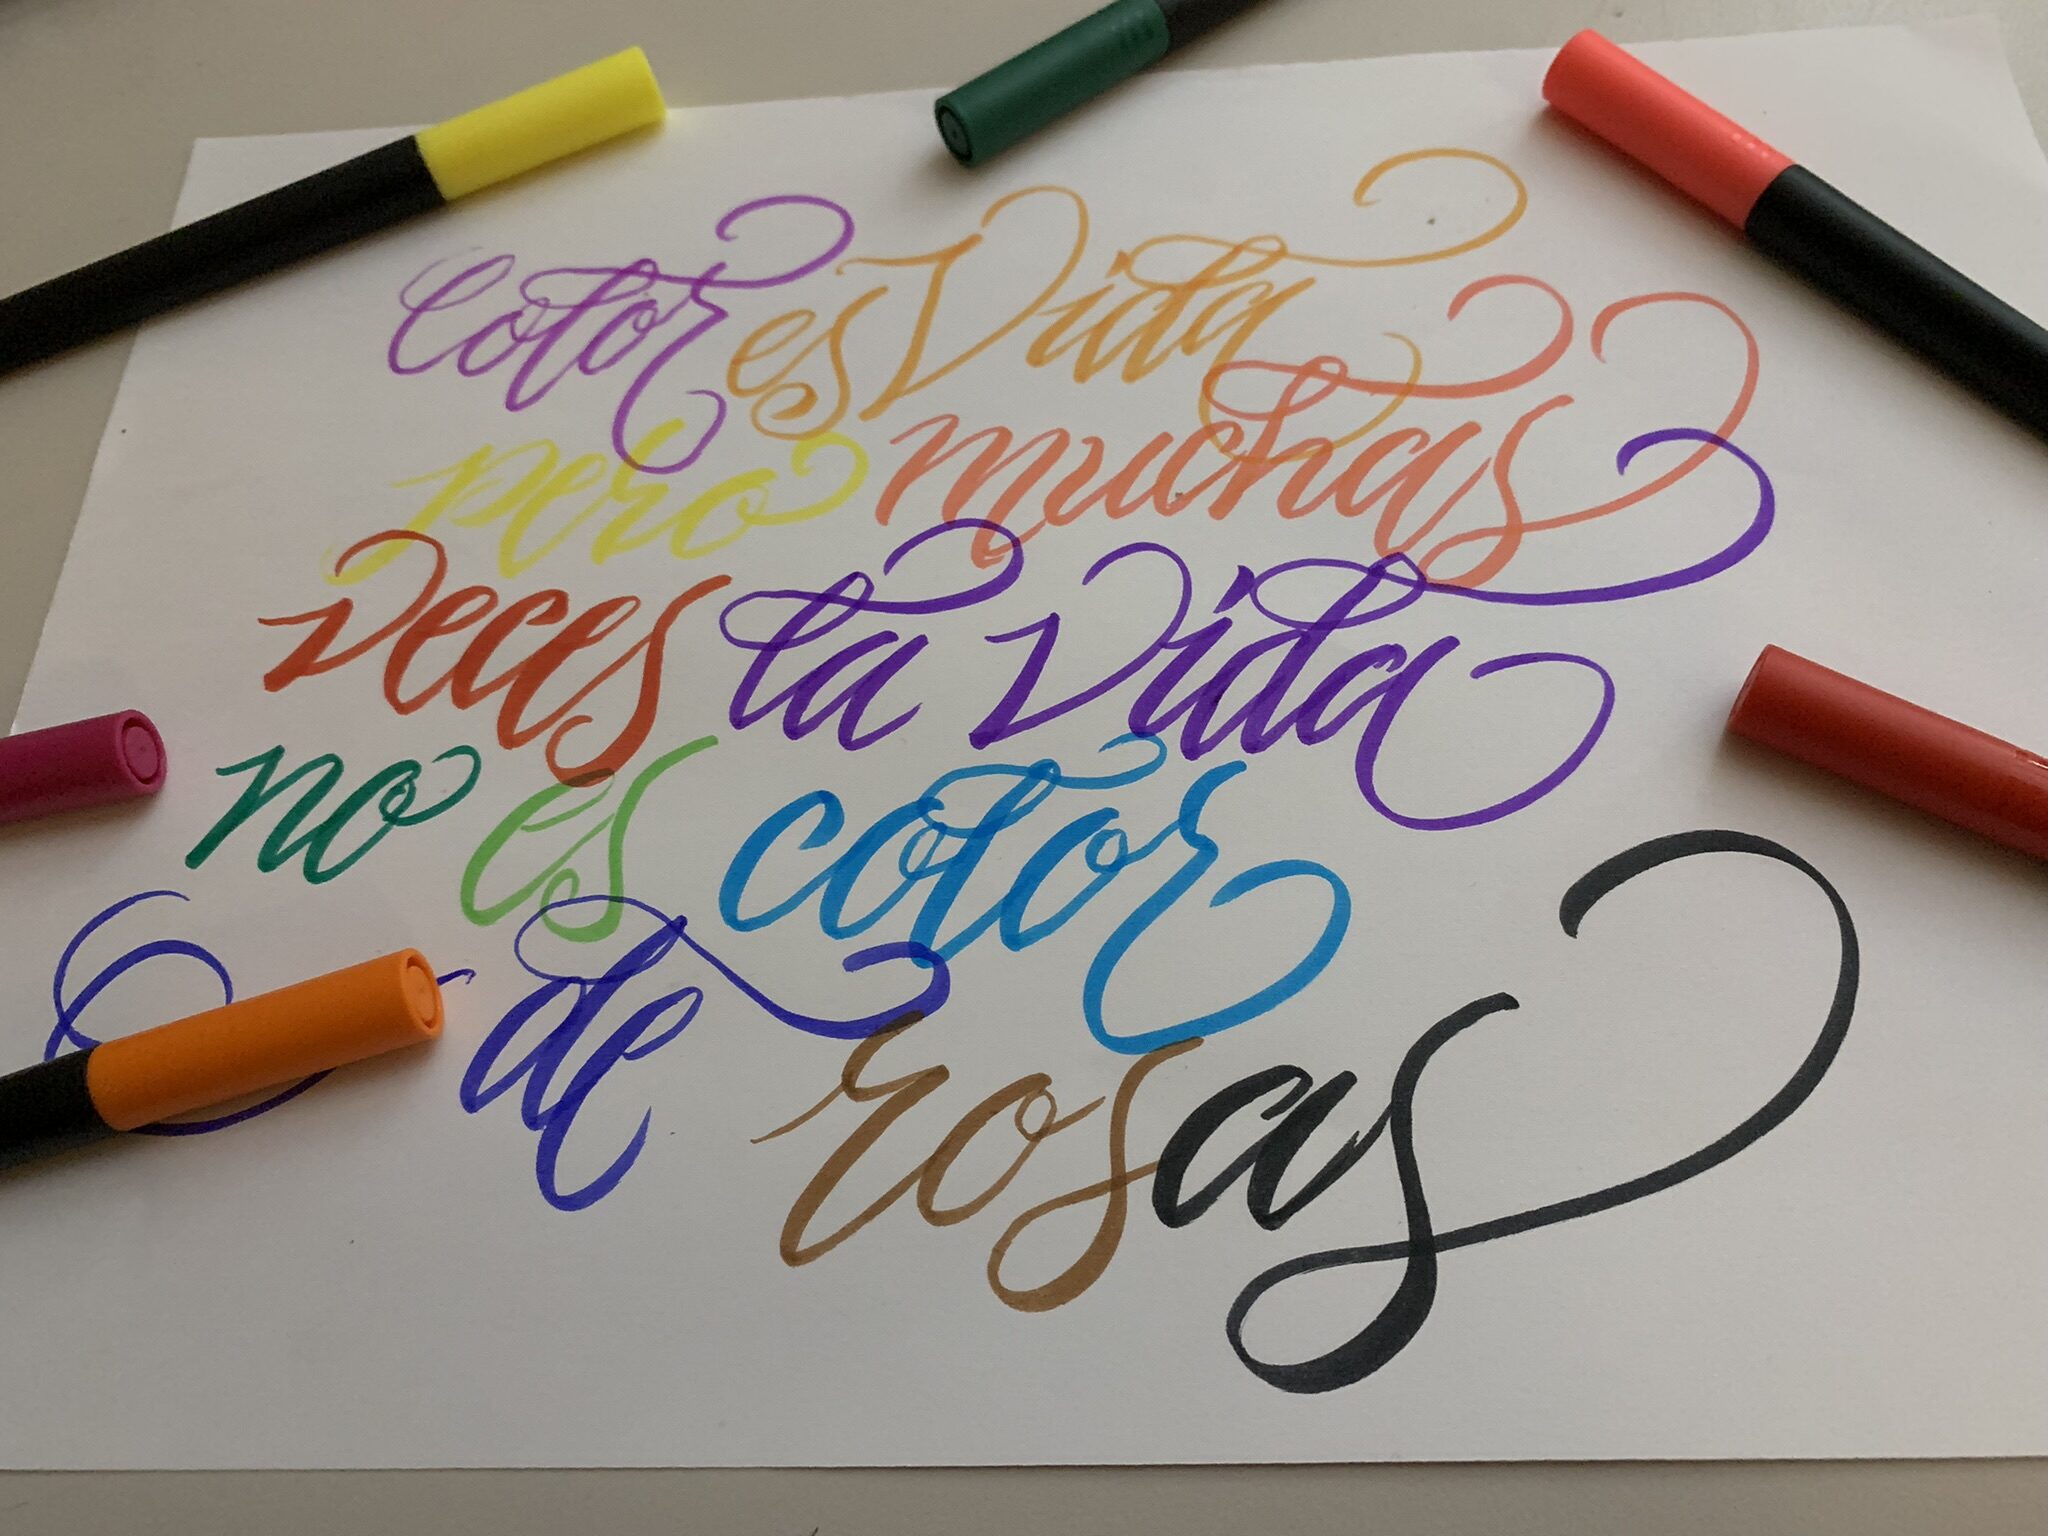 color es Vida
pero muchas
veces la vida
no es color
de rosas